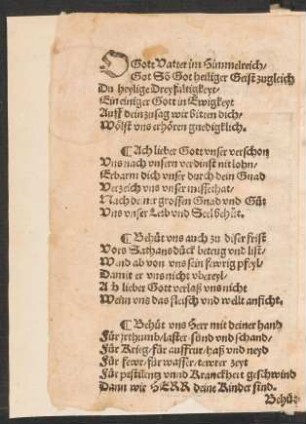 O Gott Vatter im Himmelreich/
Got Sō Got heiliger Geist zugleich
Du heylige Dreyfaltigkeyt/
Ein einiger Gott in Ewigkeyt
Auff dein zusag wir bitten dich/
Wölst vns erhören gnedigklich.
¶ Ach lieber Gott vnser verschon
Vns nach vnsern verdinst nit lohn/
Erbarm dich vnser durch dein Gnad
Verzeich vns vnser missethat/
Nach deiner grossen Gnad vnd Güt
Vns vnser Leib vnd Seel behüt.
¶ Behüt vns auch zu diser frist
Vors Sathans dück betrug vnd list/
Wend ab von vns sein fewrig pfeyl/
Damit er vns nicht vbereyl/
Ach lieber Gott verlaß vns nicht
Wenn vns das fleisch vnd wellt anficht.
¶ Behüt vns Herr mit deiner hand
Für jrthumb/laster/sünd vnd schand/
Für Krieg/für auffrur/haß vnd neyd
Für fewr/für wasser/tewrer zeyt
Für pestilentz vnnd Kranckheit geschwind
Dann wir HERR deine Kinder sind.
Behüt